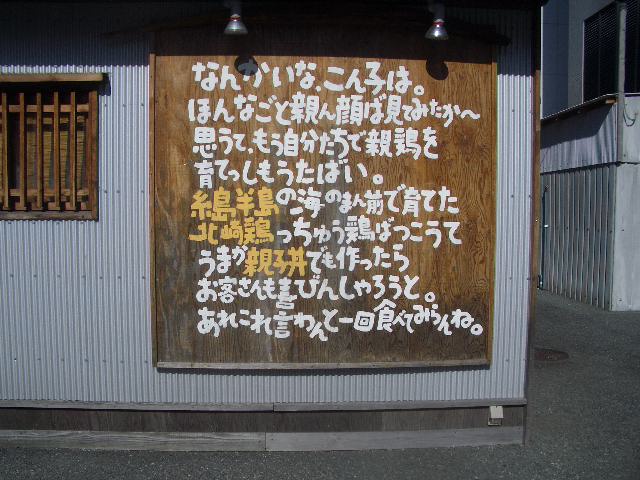 なんかいな、こん子は。
ほんなごと親ん顔ば見てみたか～
思うて、もう自分たちで親鶏を
育てっしもうたばい。
糸島半島の海のまん前で育てた
北崎鶏っちゅう鶏ばつこうて
うまか親子丼でも作ったら
お客さんも喜びんしゃろうと。
あれこれ言わんと一回食べてみらんね。